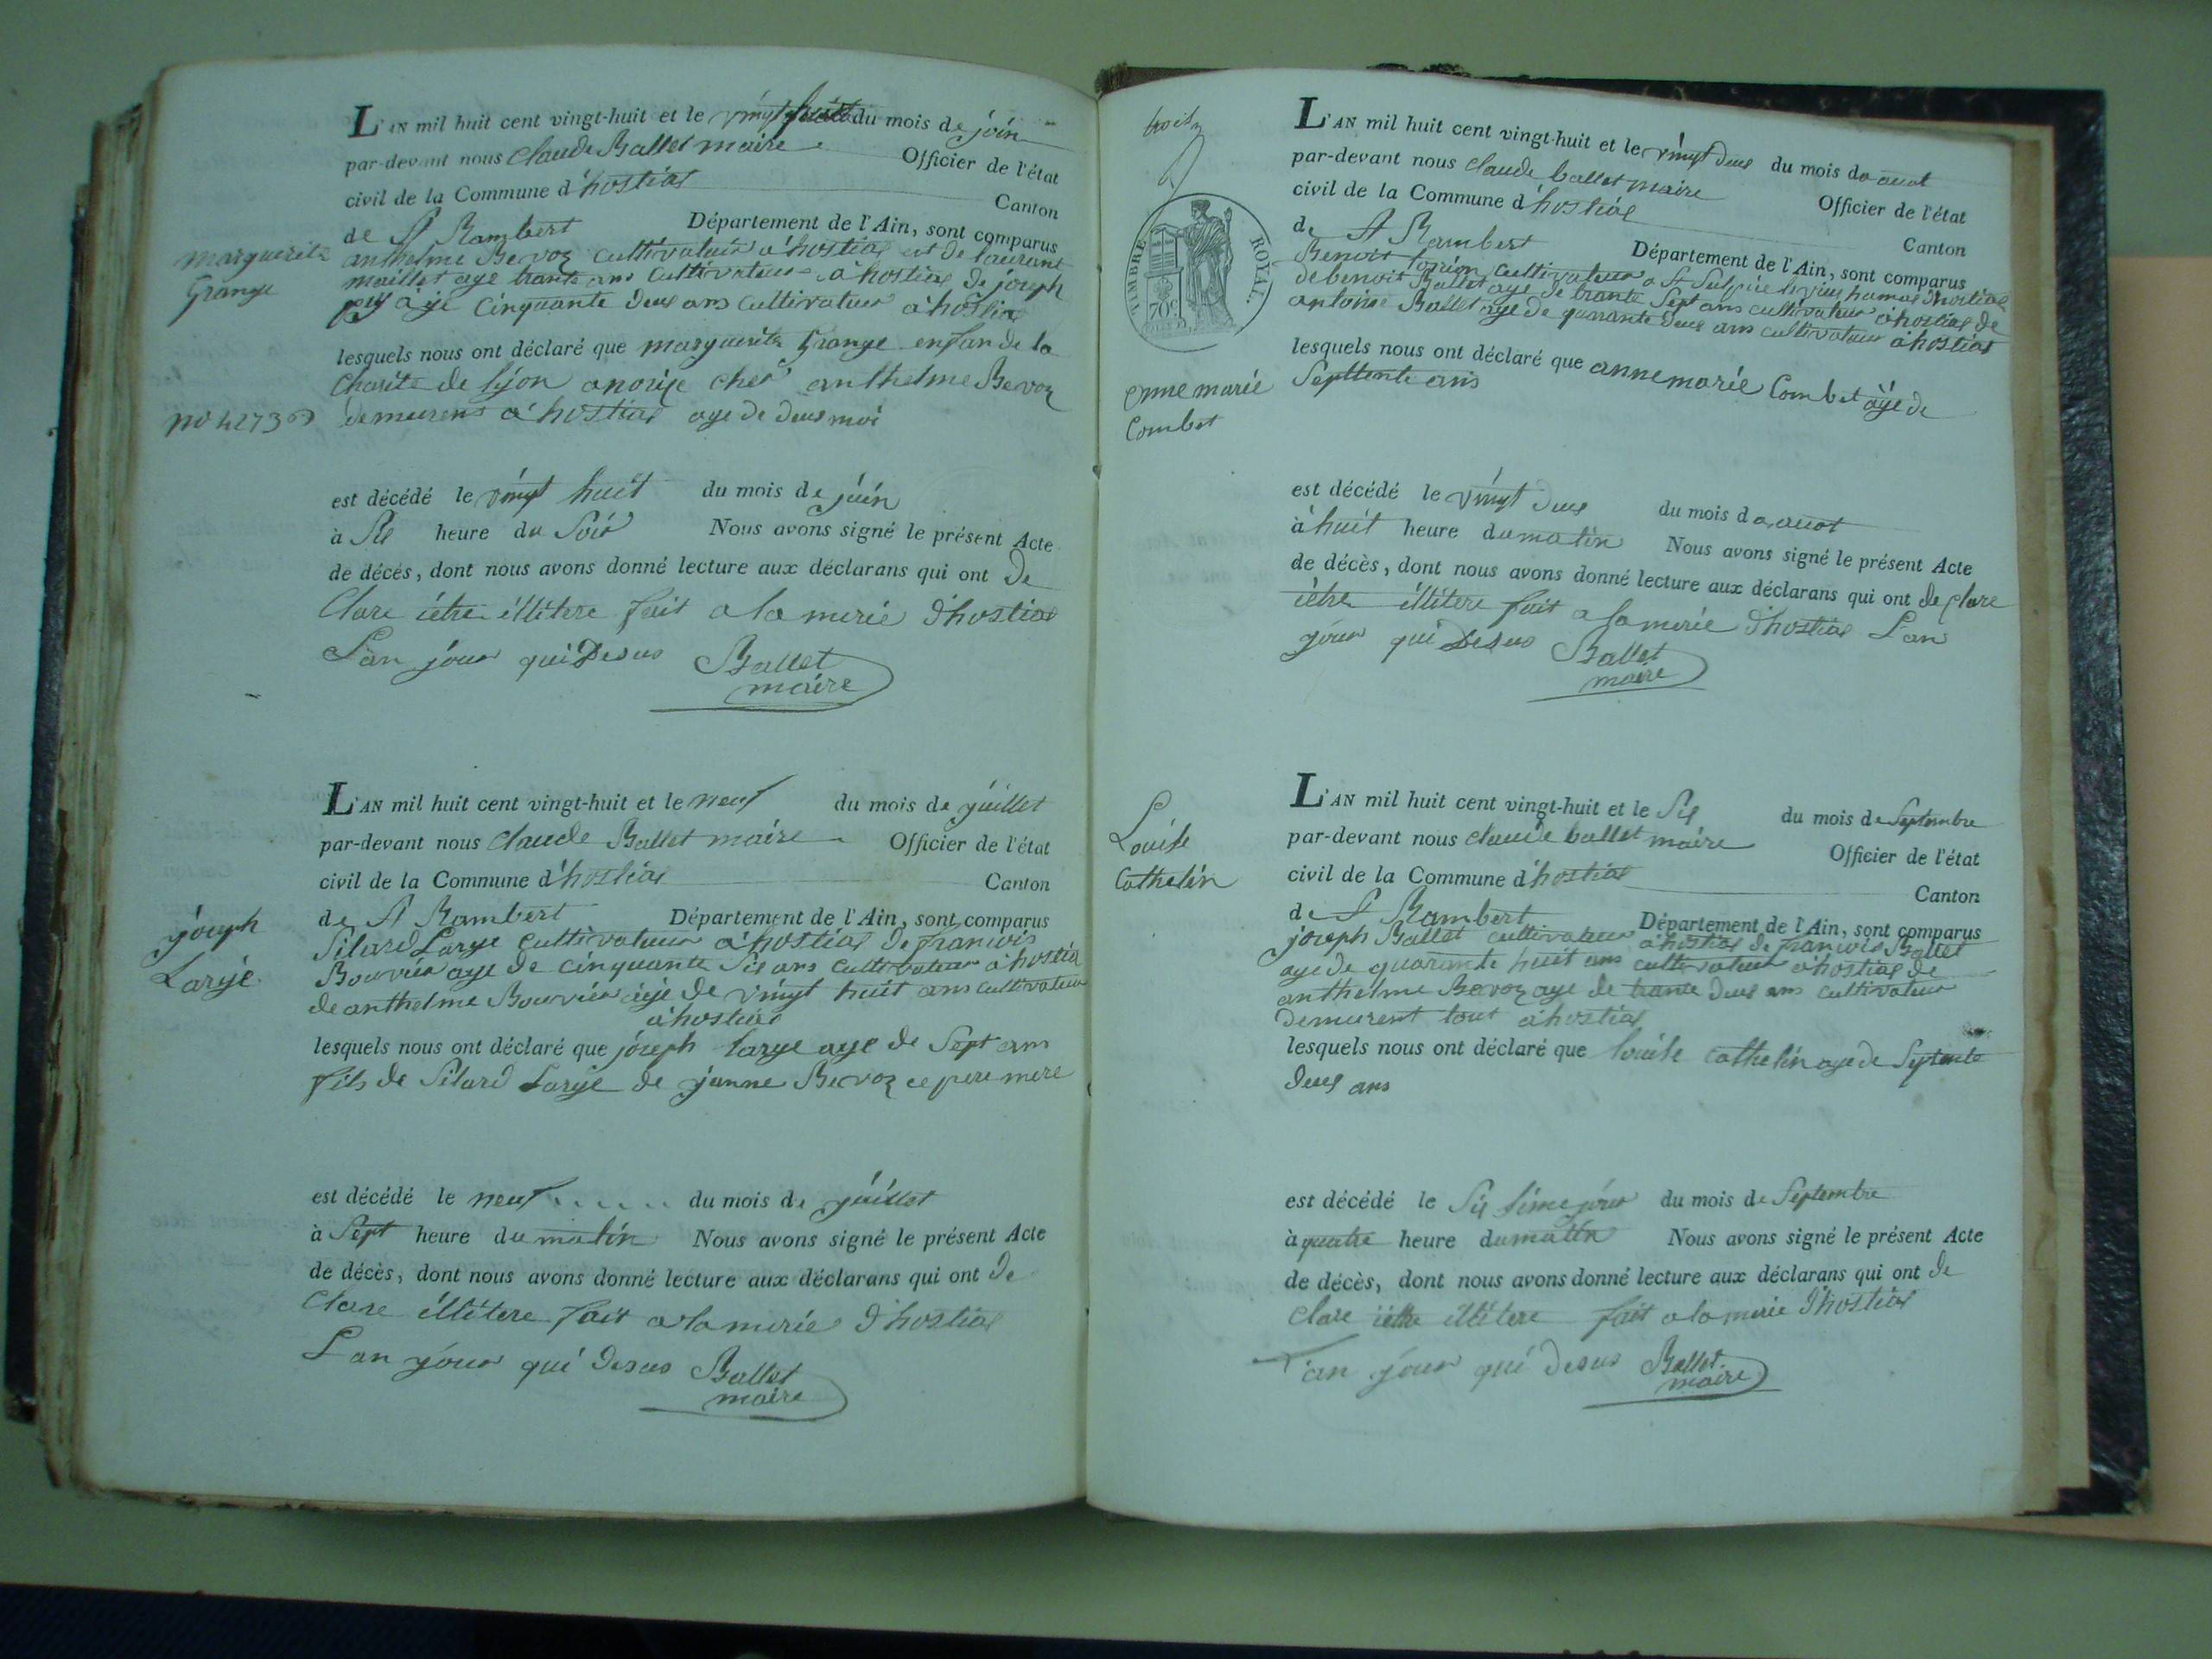 L'AN mil huit cent vingt-huit et le vingt huit du mois de join
par-devant nous claude Ballet maire Officier de l'état
civil de la Commune d'hostias Canton
de St Rambert Département de l'Ain, sont comparus
anthelme Bevoz cultivateur a hostias et de laurent
maillet aye trante ans Cultivateur a hostias de joseph
aÿe Cinquante deus ans cultivateur a hostias
lesquels nous ont déclaré que marguerite Grange enfan de la
Charite de lyon anorije ches anthelme Bevoz
demurens a hostias aye de deus moi
marguerite
Grange
no 42736
est décédé le vingt huit du mois de juin
à Sis heure du Soir Nous avons signé le présent Acte
de décès, dont nous avons donné lecture aux déclarans qui ont de
Clare iétre illitere fait a la merie d'hostias
L'an jour qui Desus Ballet
maire
L'AN mil huit cent vingt-huit et le neuf du mois de juillet
par-devant nous claude Ballet maire Officier de l'état
civil de la Commune d'hostias Canton
de St Rambert Département de l'Ain, sont comparus
Silard Larje cultivateur a hostias de francois
Bouvier aye de cinquante Sis ans cultivateur a hostias
de anthelme Bouvier aje de vingt huit ans cultivateur
a hostias
lesquels nous ont déclaré que joseph larye aye de Sept ans
fils de Silard Larje de janne Bevoz ce pere mere
joseph
Larje
est décédé le neuf du mois de juillet
à Sept heure du matin Nous avons signé le présent Acte
de décès, dont nous avons donné lecture aux déclarans qui ont de
Clare illitere fait a la merie d'hostias
L'an jour qui Desus Ballet
maire
TIMBRE ROYAL
70c
L'AN mil huit cent vingt-huit et le vingt deus du mois do auot
par-devant nous claude ballet maire Officier de l'état
civil de la Commune d'hostias Canton
de St Rambert Département de l'Ain, sont comparus
Benoit cultivateur a St Sulpice d'hostias
de benoit Ballet aye de trante Sept ans cultivateur a hostias de
antoine Ballet aye de quarante deus ans cultivateur a hostias
lesquels nous ont déclaré que anne marie Combet aÿe de
Septtente ans
enne marie
Combet
est décédé le vingt deus du mois do auot
à huit heure du matin Nous avons signé le présent Acte
de décès, dont nous avons donné lecture aux déclarans qui ont de clare
iétre illitere fait a la merie d'hostias L'an
jour qui Desus Ballet
maire
L'AN mil huit cent vingt-huit et le Sis du mois de Septembre
par-devant nous claude ballet maire Officier de l'état
civil de la Commune d'hostias Canton
de St Rambert Département de l'Ain, sont comparus
joseph Ballet cultivateur a hostias de francois Ballet
aye de quarante huit ans cultivateur a hostias de
anthelme Bevoz aye de trante deus ans cultivateur
demurent tout a hostias
lesquels nous ont déclaré que louise Cathelin aye de Septente
deus ans
Louise
Cathelin
est décédé le Sis sime jour du mois de Septembre
à quatre heure du matin Nous avons signé le présent Acte
de décès, dont nous avons donné lecture aux déclarans qui ont de
clare iétre illitere fait a la merie d'hostias
L'an jour qui desus Ballet
maire